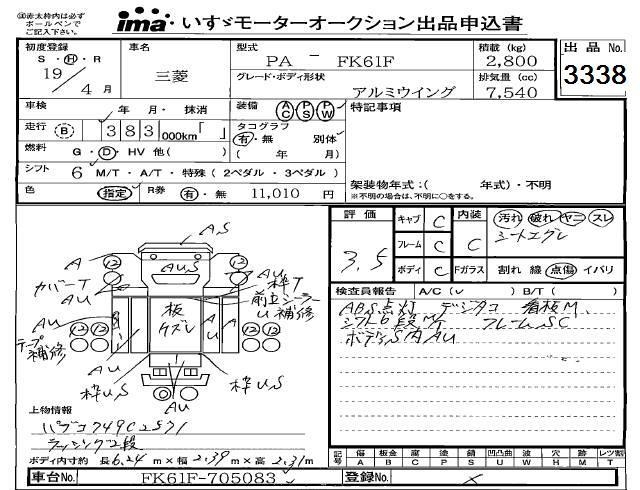 ※赤太枠内は必ず
ボールペンで
ご記入下さい。
ima いすゞモーターオークション出品申込書
初度登録 車名 型式 積載 (kg)
S・H・R 三菱 PA - FK61F 2,800
19/4月 グレード・ボディ形状 排気量 (cc)
アルミウイング 7,540
出品No.
3338
車検 年 月・抹消
装備 AC PS PW
特記事項
走行 B 383 000km「 」
タコグラフ 別体
有・無 ( 年 月)
燃料 G・D・HV 他( )
シフト 6 M/T・A/T・特殊(2ペダル・3ペダル)
架装物年式:( 年式)・不明
※不明の場合は、不明に○をする。
色 指定 R券 有・無 11,010 円
評価 3.5
キャブ C 内装 C 汚れ 破れ ヤニ スレ
シートエグレ
フレーム C
ボディ C Fガラス 割れ 線 点傷 イパリ
検査員報告 A/C(v ) B/T( )
ABS点灯 デジタコ 看板M.
シフト6段MT フレームSC
ボデーS内AU
A,S
A 12 12 A
AUS
カバーT 枠T
AU 前立シーラー
U 補修
板
ケズレ
AU A A AU
12 12 12 12
テープ
補修
枠U,S 枠U,S
AU
上物情報
パブコ749C2571
ラッシング2段
ボディ内寸約 長6.24m×幅2.39m×高2.31m
記号 傷 板金 腐 塗 錆 凹凸曲 波 穴 跡 レツ割
A B C P S U W H M T
車台No. FK61F-705083 登録No. ×